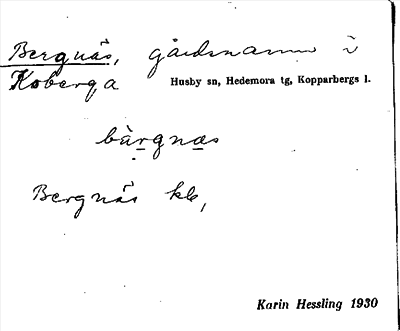 Bergnäs, gårdsnamn i
Koberga Husby sn, Hedemora tg, Kopparbergs l.
bärgnäs
Bergnäs
Karin Hessling 1930